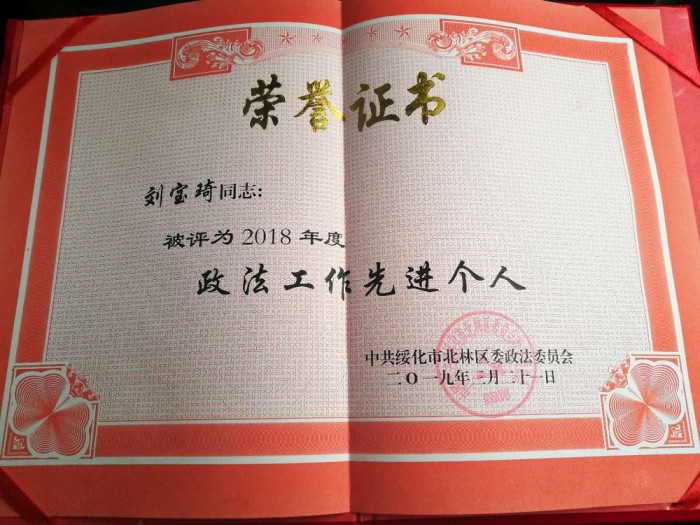 荣誉证书
刘宝琦同志:
被评为2018年度
政法工作先进个人
中共绥化市北林区委政法委员会
二〇一九年三月二十一日